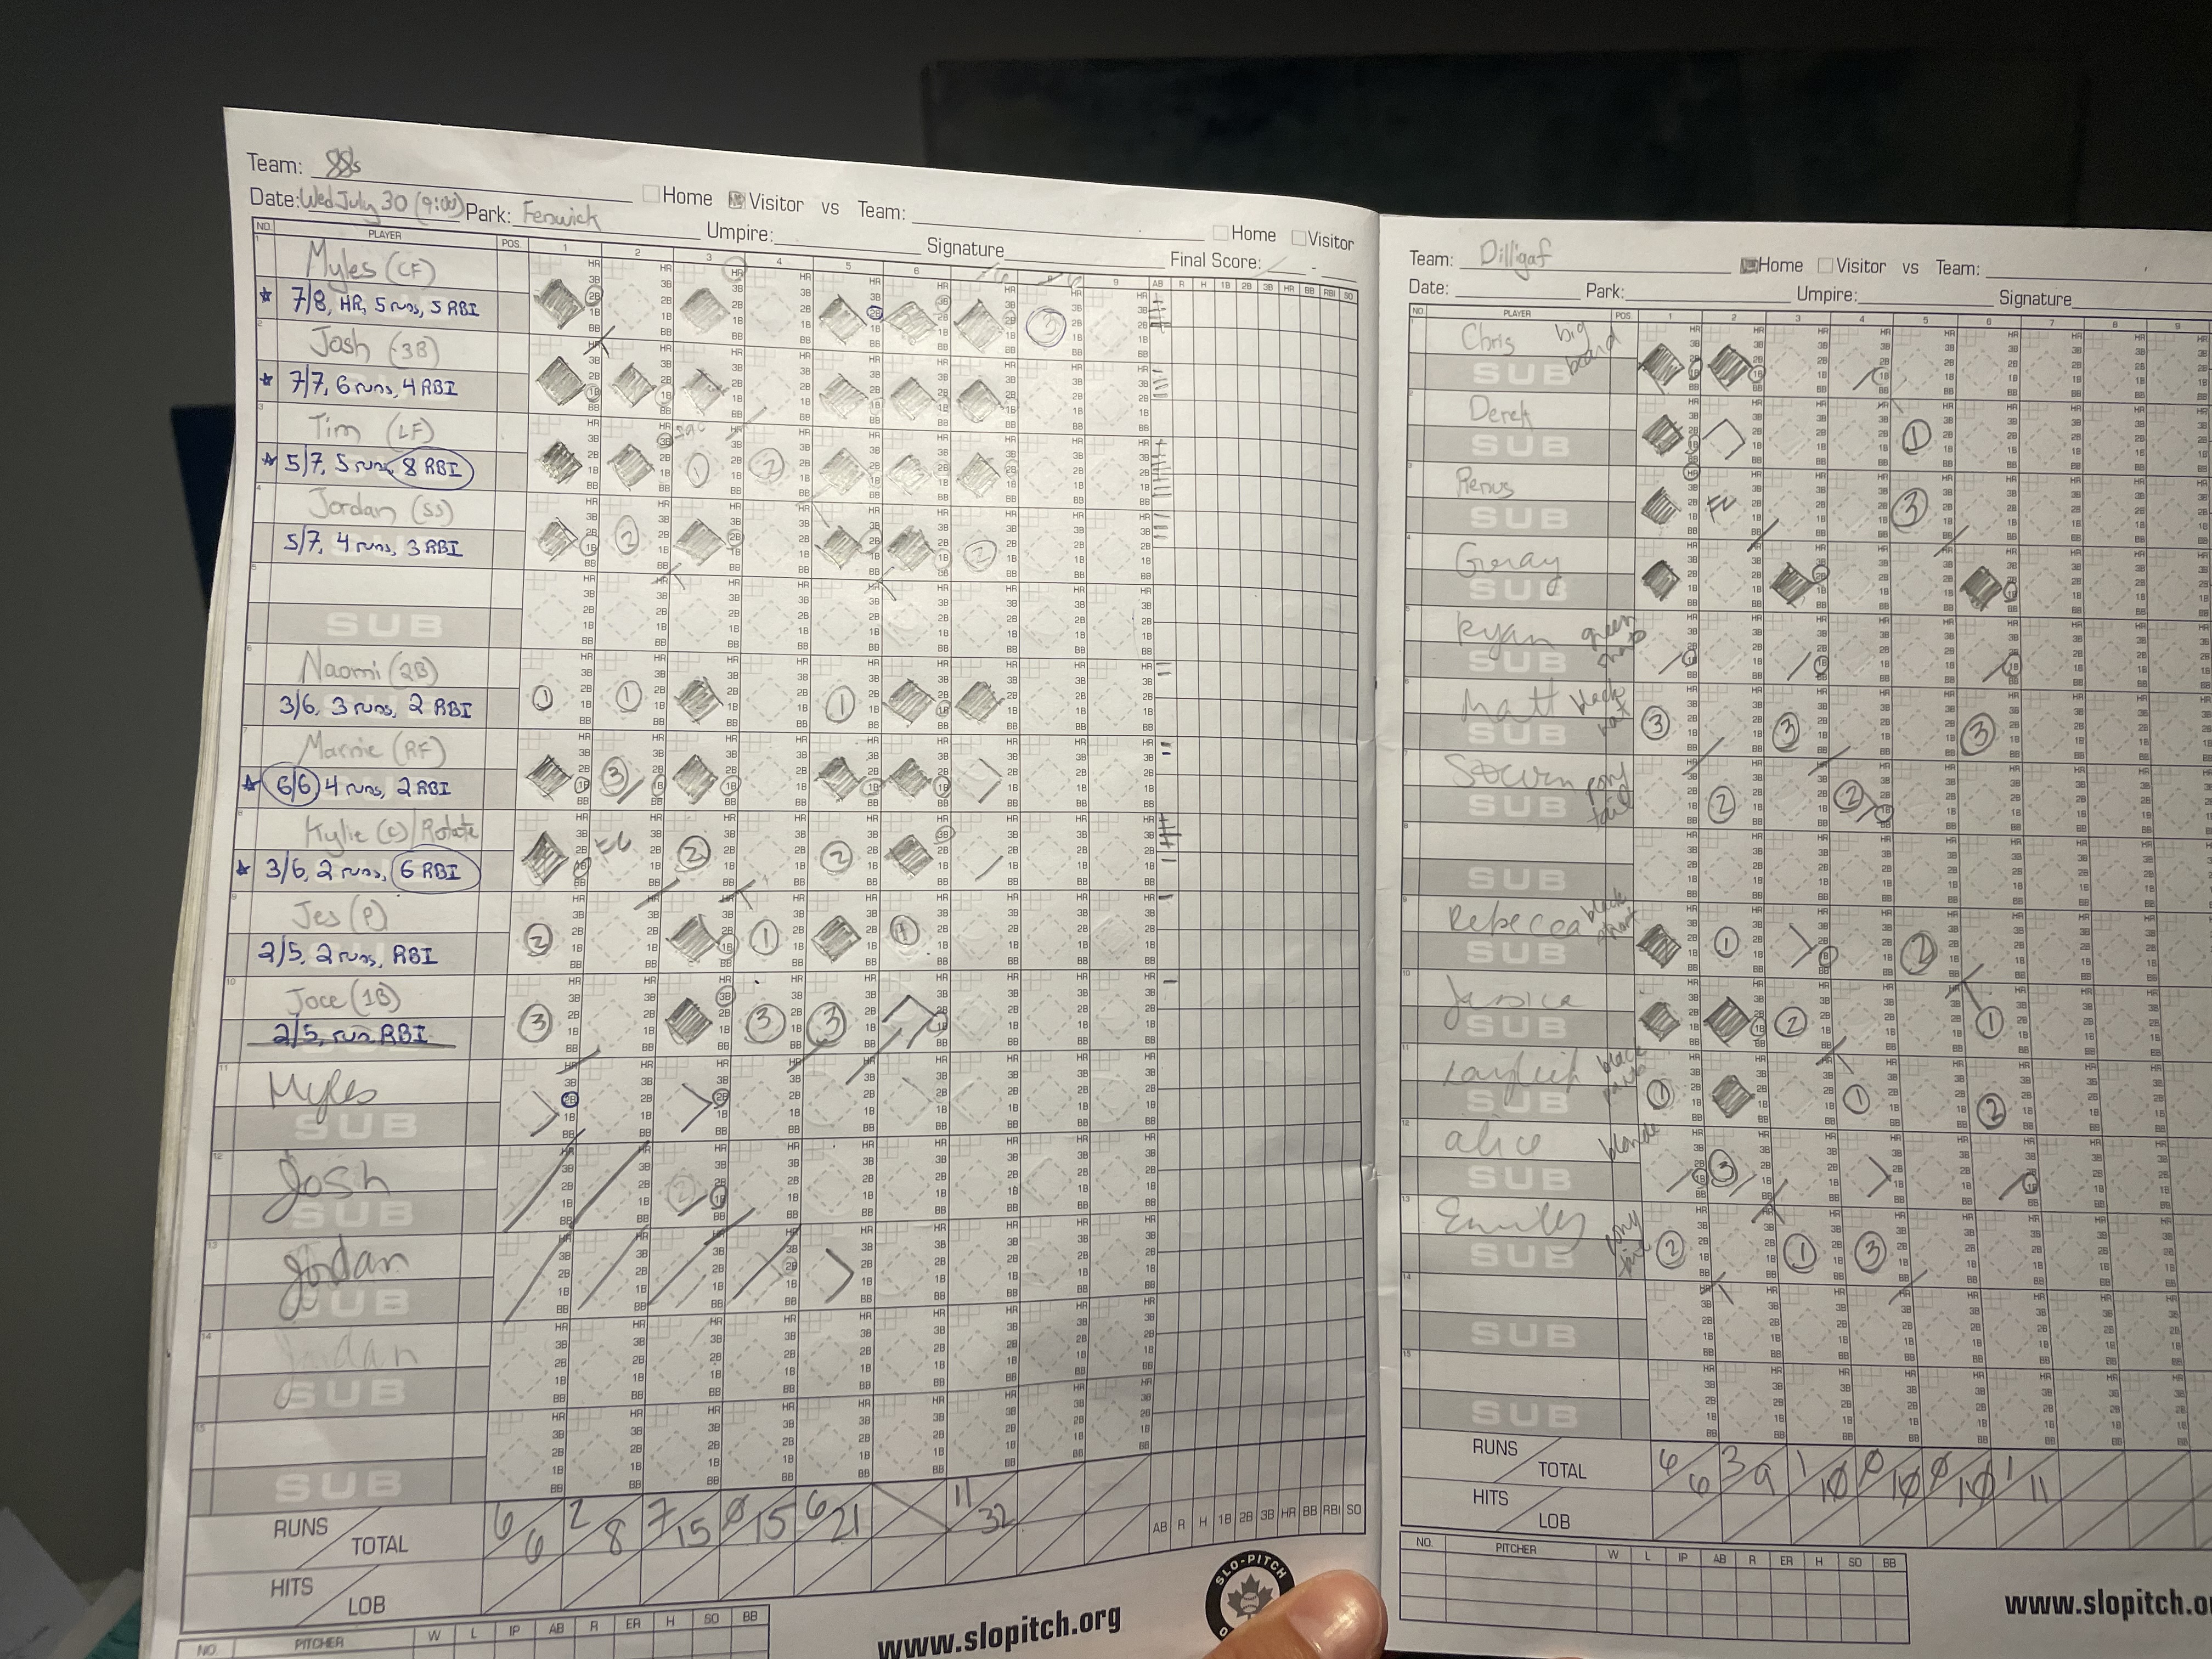 Team: 88s
Date: Wed July 30 (9:00) Park: Fenwick
Home Visitor vs Team:
Umpire: Signature
Home Visitor
Final Score: -
NO. PLAYER POS. 1 2 3 4 5 6 8 9 AB R H 1B 2B 3B HR BB RBI SO
1 Myles (CF)
7/8, HR, 5 runs, 5 RBI
2 Josh (3B)
7/7, 6 runs, 4 RBI
3 Tim (LF)
5/7, 5 runs, 8 RBI
sac
4 Jordan (SS)
5/7, 4 runs, 3 RBI
5
SUB
6 Naomi (2B)
3/6, 3 runs, 2 RBI
7 Marnie (RF)
6/6 4 runs, 2 RBI
8 Kylie (C)/Rotate
3/6, 2 runs, 6 RBI
E6
9 Jes (P)
2/5, 2 runs, RBI
10 Joce (1B)
2/5, run, RBI
11 Myles
SUB
12 Josh
SUB
13 Jordan
SUB
14 Jordan
SUB
15
SUB
RUNS 6 2 7 0 6 11
TOTAL 6 8 15 15 21 32
AB R H 1B 2B 3B HR BB RBI SO
HITS
LOB
NO. PITCHER W L IP AB R ER H SO BB
www.slopitch.org
SLO-PITCH
Team: Dilligaf
Home Visitor vs Team:
Date: Park: Umpire: Signature
PLAYER POS. 1 2 3 4 5 6 7 8 9
Chris big beard
SUB
Derek
SUB
SUB
SUB
Ryan green
SUB
Matt black hat
SUB
pony tail
SUB
SUB
Rebecca black
SUB
Jessica
SUB
black pants
SUB
alice blonde
SUB
Emily
SUB
14
SUB
15
SUB
RUNS 6 3 1 0 0 1
TOTAL 6 9 10 10 10 11
HITS
LOB
NO. PITCHER W L IP AB R ER H SO BB
www.slopitch.o